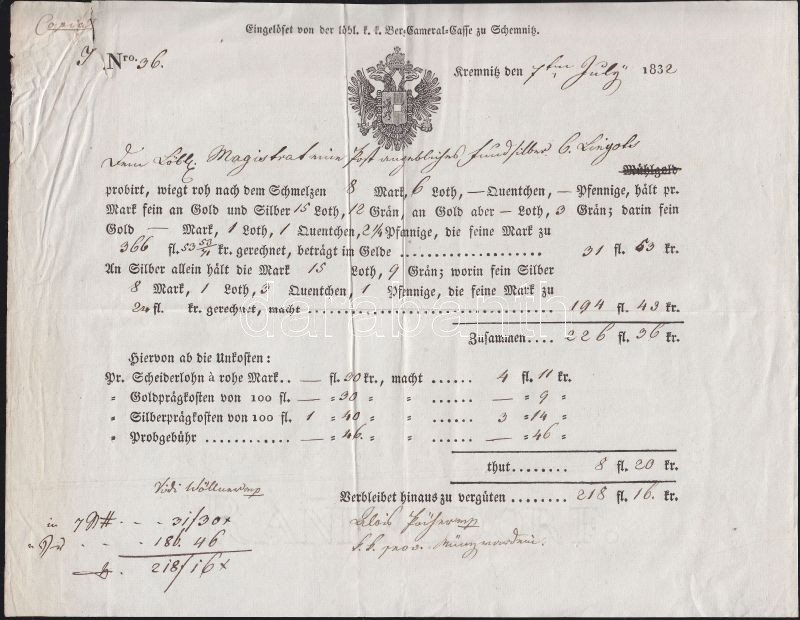 Eingelöset von der löbl. k. k. Ber-Cameral-Casse zu Schemnitz.
Copia
Nro. 36.
Kremnitz den 7ten July 1832
Dem Löbl. Magistrat eine Post angebliches Fundsilber 6. Lingots
Mühlgold
probirt, wiegt roh nach dem Schmelzen 8 Mark, 6 Loth, — Quentchen, — Pfennige, hält pr.
Mark fein an Gold und Silber 15 Loth, 12 Grän, an Gold aber — Loth, 3 Grän; darin fein
Gold — Mark, 1 Loth, 1 Quentchen, 2 1/4 Pfennige, die feine Mark zu
366 fl. 53 53/71 kr. gerechnet, beträgt im Gelde .................... 31 fl. 53 kr.
An Silber allein hält die Mark 15 Loth, 9 Grän; worin fein Silber
8 Mark, 1 Loth, 3 Quentchen, 1 Pfennige, die feine Mark zu
24 fl. kr. gerechnet, macht .................... 194 fl. 43 kr.
darabanth
Zusammen.... 226 fl. 36 kr.
Hiervon ab die Unkosten:
Pr. Scheiderlohn à rohe Mark.. — fl. 30 kr., macht ...... 4 fl. 11 kr.
" Goldprägkosten von 100 fl. — " 30 " " ...... — " 9 "
" Silberprägkosten von 100 fl. 1 " 40 " " ...... 3 " 14 "
" Probgebühr ........... — " 46. " " ...... — " 46 "
thut........ 8 fl. 20 kr.
Verbleibet hinaus zu vergüten........ 218 fl. 16. kr.
Vidi Wöllner mp
in 7 - - - 31/30 x
" - - 186. 46
218/16 x
Alois
k. k. prov. Münzwardein.